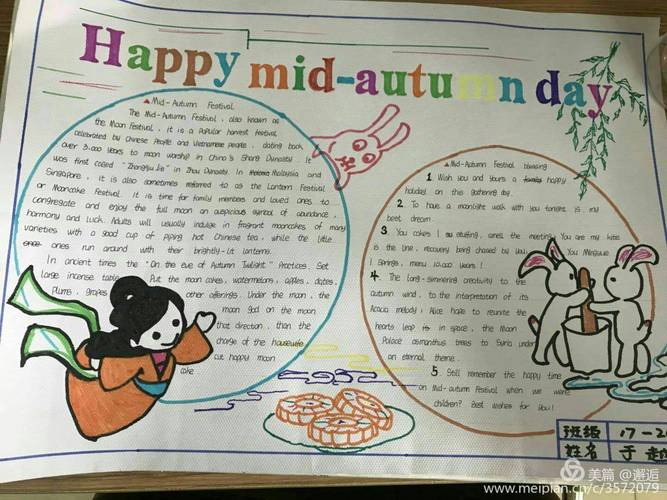 Happy mid-autumn day
▲Mid-Autumn Festival
The Mid-Autumn Festival, also known as
the Moon Festival, it is a popular harvest festival
celebrated by Chinese People and Vietnamese people, dating back
over 3,000 years to moon worship in China's Shang Dynasty. It
was first called "Zhongqiu Jie" in Zhou Dynasty. In Malaysia and
Singapore, it is also sometimes referred to as the Lantern Festival
or Mooncake Festival. It is time for family members and loved ones to
congregate and enjoy the full moon an auspicious symbol of abundance,
harmony and luck. Adults will usually indulge in fragrant mooncakes of many
varieties with a good cup of piping hot Chinese tea, while the little
ones run around with their brightly-lit lanterns.
In ancient times the "On the eve of Autumn Twilight" Practices. Set
large incense table. Put the moon cakes, watermelons, apples, dates,
Plums, grapes other offerings. Under the moon, the
moon god on the moon
that direction, than the
charge of the housewife
cut happy moon
cake
▲Mid-Autumn Festival blessing
1 Wish you and yours a happy
holiday on this gathering day.
2 To have a moonlight walk with you tonight is my
best dream.
3 You cakes I stuffing, sweet the meeting. You are my kite
is the line, recovery being chased by you. You Mingyue
I Springs, menu 10,000 years!
4 The Long-simmering creativity to the
autumn wind, to the interpretation of its
Acacia melody; Alice hate to reunite the
hearts leap in space, the Moon
Palace osmanthus trees to Syria under
an eternal theme.
5 Still remember the happy time
on Mid-autumn Festival when we were
children? Best wishes for you!
班级 17-2
姓名 于越
美篇 @邂逅
www.meipian.cn/c/3572079